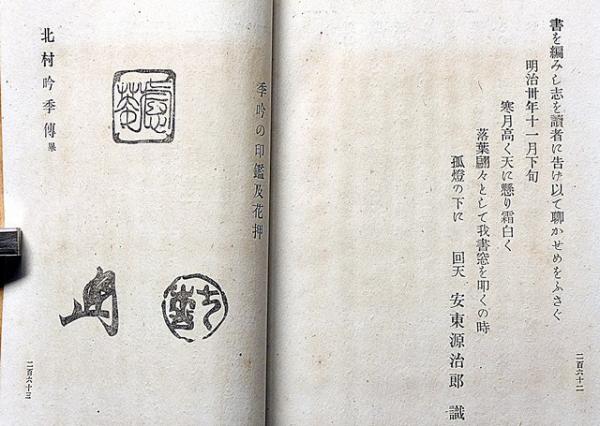 書を編みし志を讀者に告け以て聊かせめをふさぐ
明治卅年十一月下旬
寒月高く天に懸り霜白く
落葉翩々として我書窓を叩くの時
孤燈の下に 回天 安東源治郎 識
二百六十二
季吟の印鑑及花押
北村吟季傳畢
二百六十三